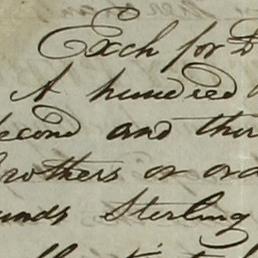 Exch for
A hundred
Second and thir
Brothers or ord
unds Sterling